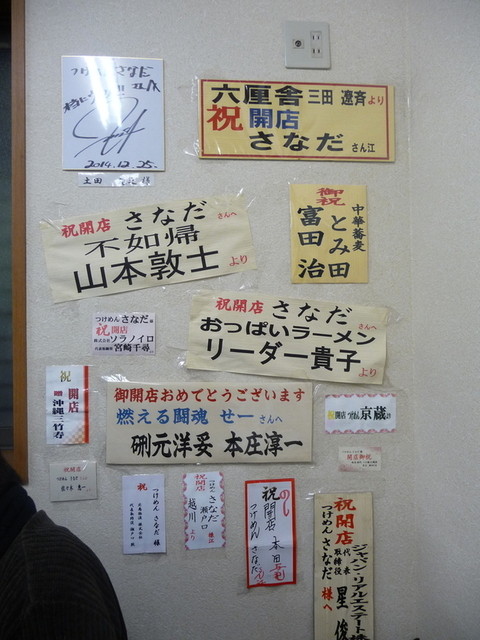 つけめんさなだ
2014.12.25.
六厘舎 三田 遼斉 より
祝 開店
さなだ さん江
祝開店 さなだ さんへ
不如帰
山本敦士 より
御祝
中華蕎麦
とみ田
富田 治
祝開店 さなだ さんへ
おっぱいラーメン
リーダー貴子 より
つけめん さなだ 様
祝 開店
株式会社 ソラノイロ
宮崎千尋
祝 開店
贈 沖縄三竹寿
御開店おめでとうございます
燃える闘魂 せー さんへ
研元洋妥 本庄淳一
祝 開店 つけめん 京蔵
開店御祝
祝開店
祝
つけめん さなだ 様
祝開店
つけめん さなだ 様江
瀬戸口
越川 より
祝開店 本田
つけめん さなださんへ
ジャパン・リアルエステート
祝開店 代表取締役 星 俊
つけめん さなだ 様へ